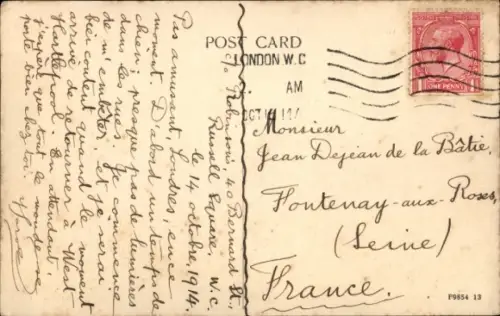 POST CARD
LONDON W.C
AM
OCT 14
ONE PENNY
c/o Robinson's, 40 Bernard St.,
Russell Square, W.C.
le 14 octobre 1914.
Pas amusant, Londres, en ce
moment. D'abord un temps de
chien; presque pas de lumières
dans les rues. Je commence
de m'embêter, et je serai
bien content quand le moment
arrive de retourner à West
Hartlepool. En attendant,
j'espère que tout le monde se
porte bien chez toi.
Monsieur
Jean Dejean de la Bâtie.
Fontenay-aux-Roses,
(Seine)
France.
P9854 13